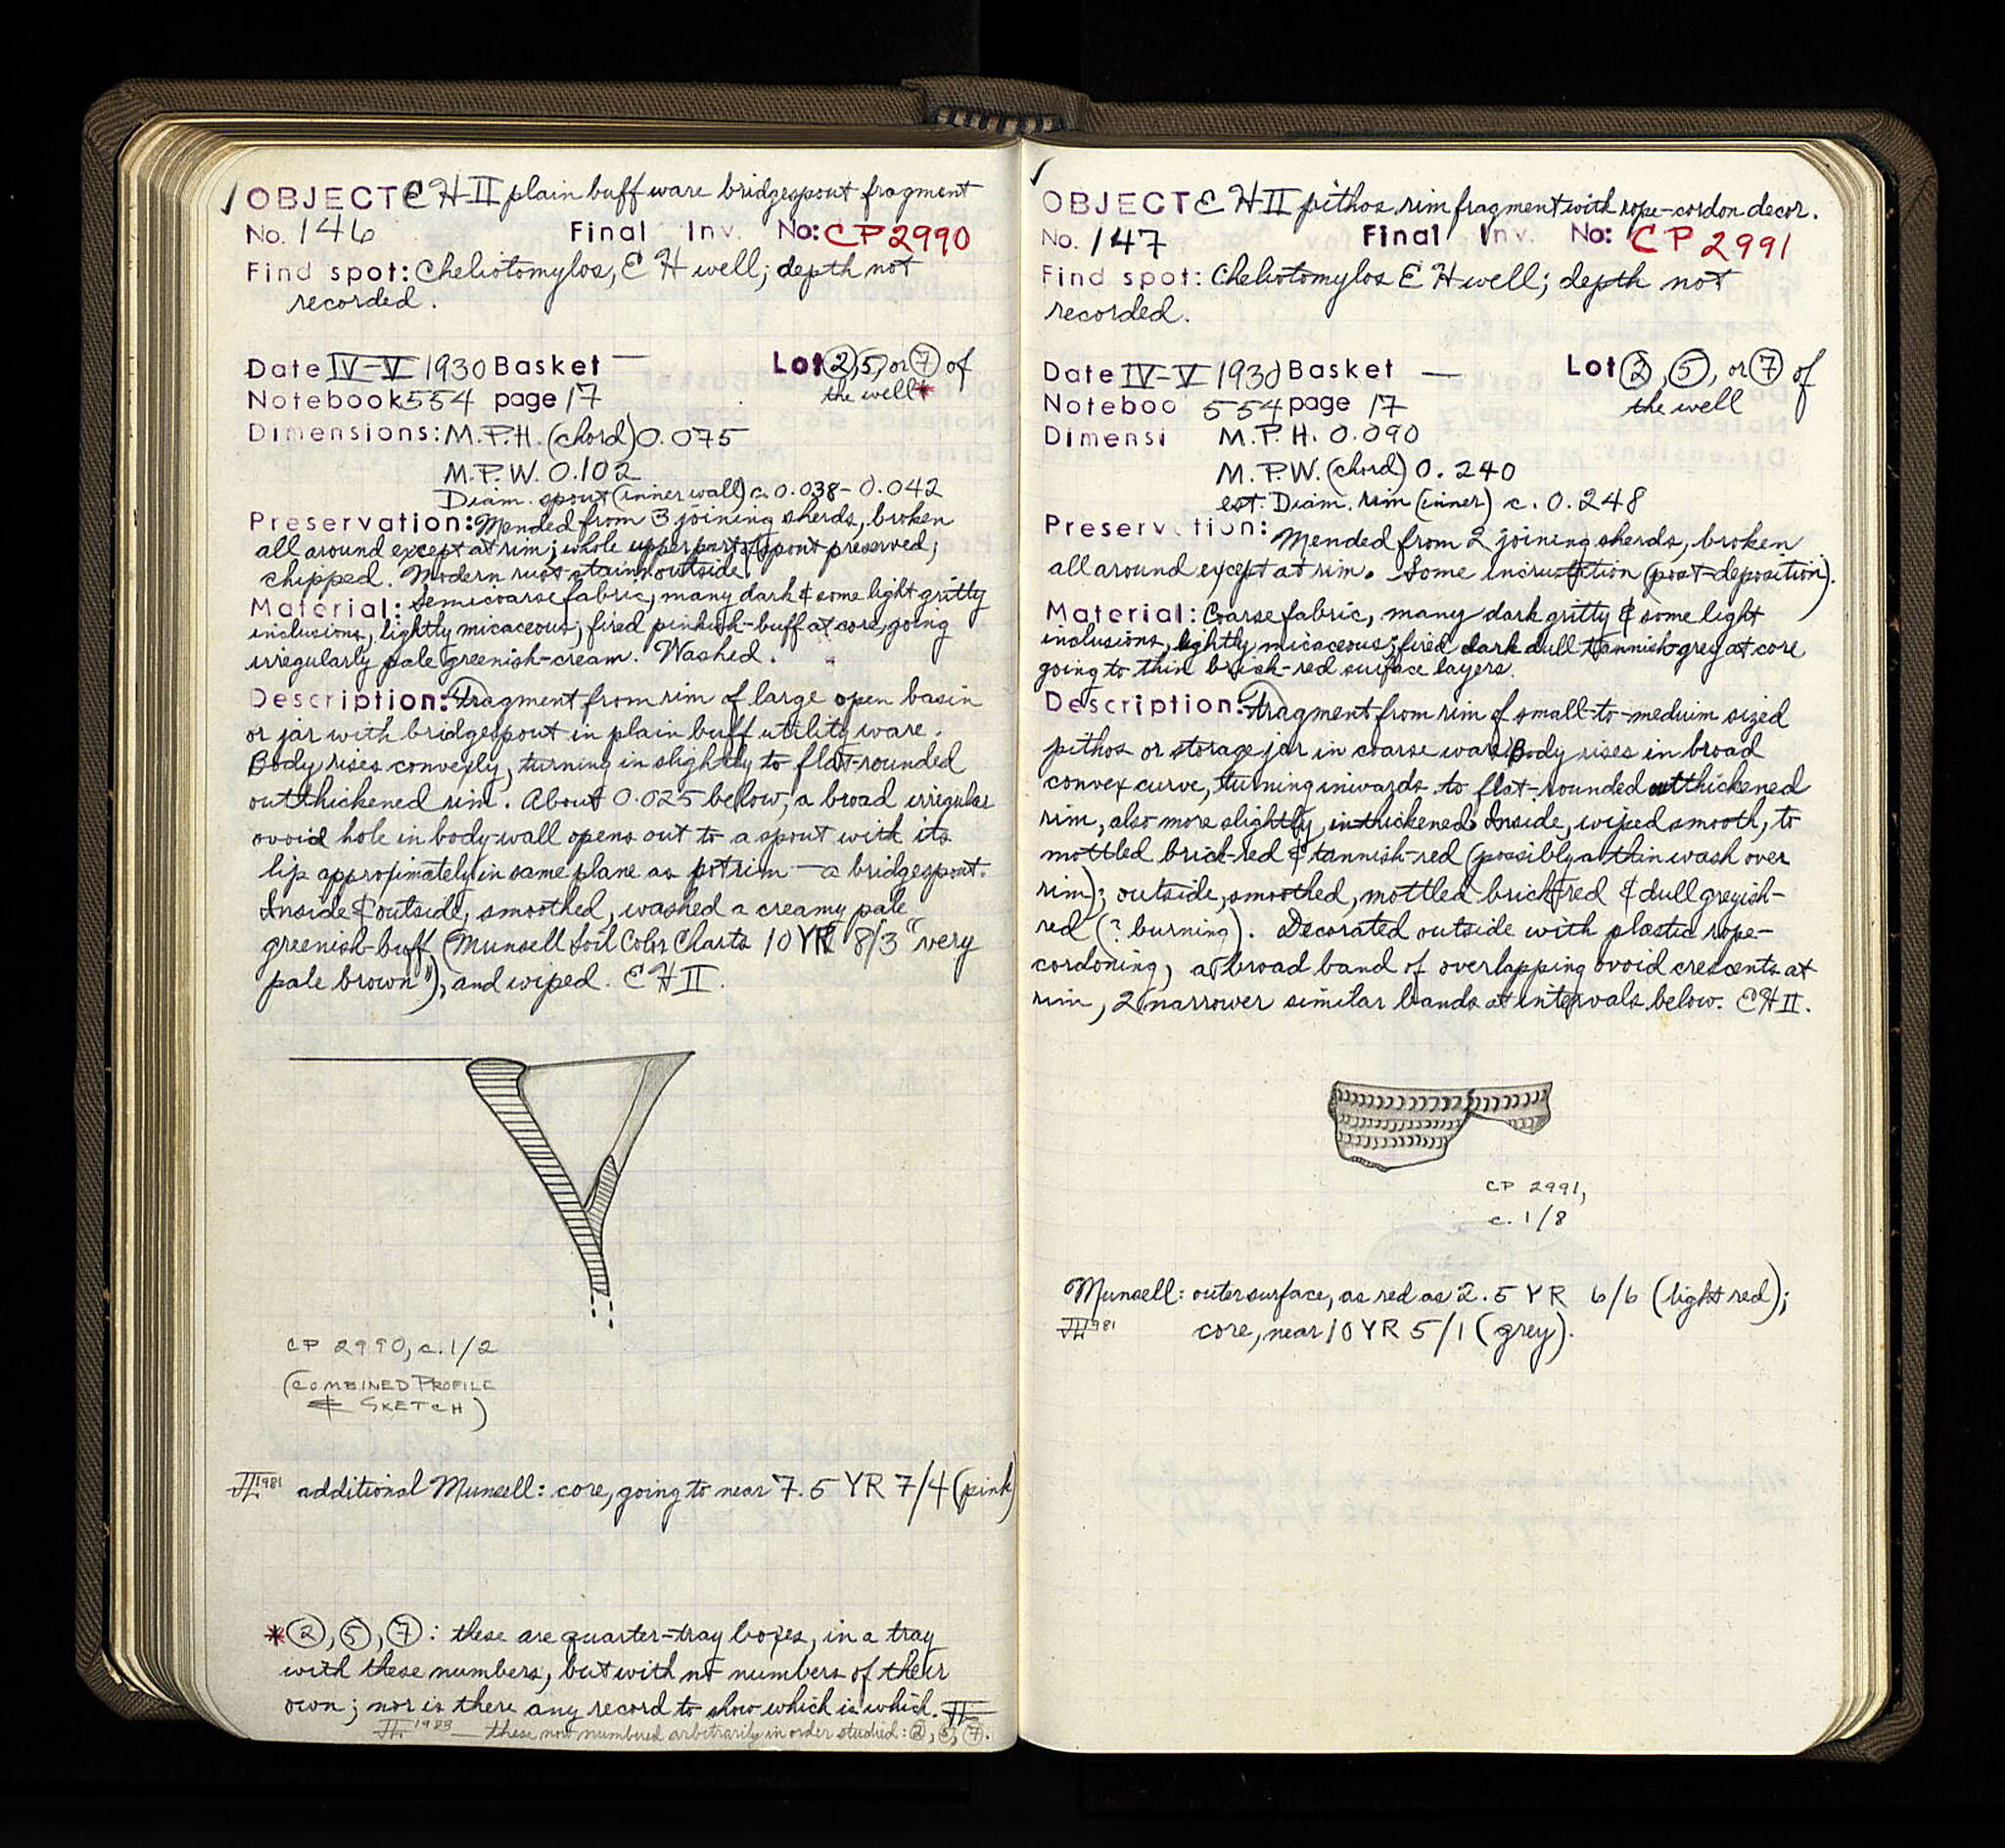 ✓ OBJECT EH II plain buff ware bridgespout fragment
No. 146 Final Inv. No: CP 2990
Find spot: Cheliotomylos, EH well; depth not
recorded.
Date IV-V 1930 Basket — Lot ②, 5, or ⑦ of
the well*
Notebook 554 page 17
Dimensions: M.P.H. (chord) 0.075
M.P.W. 0.102
Diam. spout (inner wall) c. 0.038-0.042
Preservation: Mended from 3 joining sherds, broken
all around except at rim; whole upper part of spout preserved;
chipped. Modern rust stains outside.
Material: Semicoarse fabric, many dark & some light gritty
inclusions, lightly micaceous; fired pinkish-buff at core, going
irregularly pale greenish-cream. Washed.
Description: Fragment from rim of large open basin
or jar with bridgespout in plain buff utility ware.
Body rises convexly, turning in slightly to flat-rounded
outthickened rim. About 0.025 below, a broad irregular
ovoid hole in body wall opens out to a spout with its
lip approximately in same plane as pot rim — a bridgespout.
Inside & outside, smoothed, washed a creamy pale
greenish-buff (Munsell Soil Color Charts 10 YR 8/3 "very
pale brown"), and wiped. EH II.
CP 2990, c. 1/2
(COMBINED PROFILE
& SKETCH)
1981 additional Munsell: core, going to near 7.5 YR 7/4 (pink)
*②, ⑤, ⑦: these are quarter-tray boxes, in a tray
with these numbers, but with no numbers of their
own; nor is there any record to show which is which.
1983 — these now numbered arbitrarily in order studied: ②, ⑤, ⑦.
✓
OBJECT EH II pithos rim fragment with rope-cordon decor.
No. 147 Final Inv. No: CP 2991
Find spot: Cheliotomylos EH well; depth not
recorded.
Date IV-V 1930 Basket — Lot ②, ⑤, or ⑦ of
the well
Noteboo 554 page 17
Dimensi M.P.H. 0.090
M.P.W. (chord) 0.240
est. Diam. rim (inner) c. 0.248
Preservation: Mended from 2 joining sherds, broken
all around except at rim. Some incrustation (post-deposition).
Material: Coarse fabric, many dark gritty & some light
inclusions, lightly micaceous; fired dark dull tannish-grey at core
going to thin brick-red surface layers.
Description: Fragment from rim of small-to-medium sized
pithos or storage jar in coarse ware. Body rises in broad
convex curve, turning inwards to flat-rounded outthickened
rim, also more slightly inthickened. Inside, wiped smooth, to
mottled brick-red & tannish-red (possibly a thin wash over
rim); outside, smoothed, mottled brick-red & dull greyish-
red (? burning). Decorated outside with plastic rope-
cordoning, a broad band of overlapping ovoid crescents at
rim, 2 narrower similar bands at intervals below. EH II.
CP 2991,
c. 1/8
Munsell: outer surface, as red as 2.5 YR 6/6 (light red);
1981 core, near 10 YR 5/1 (grey).